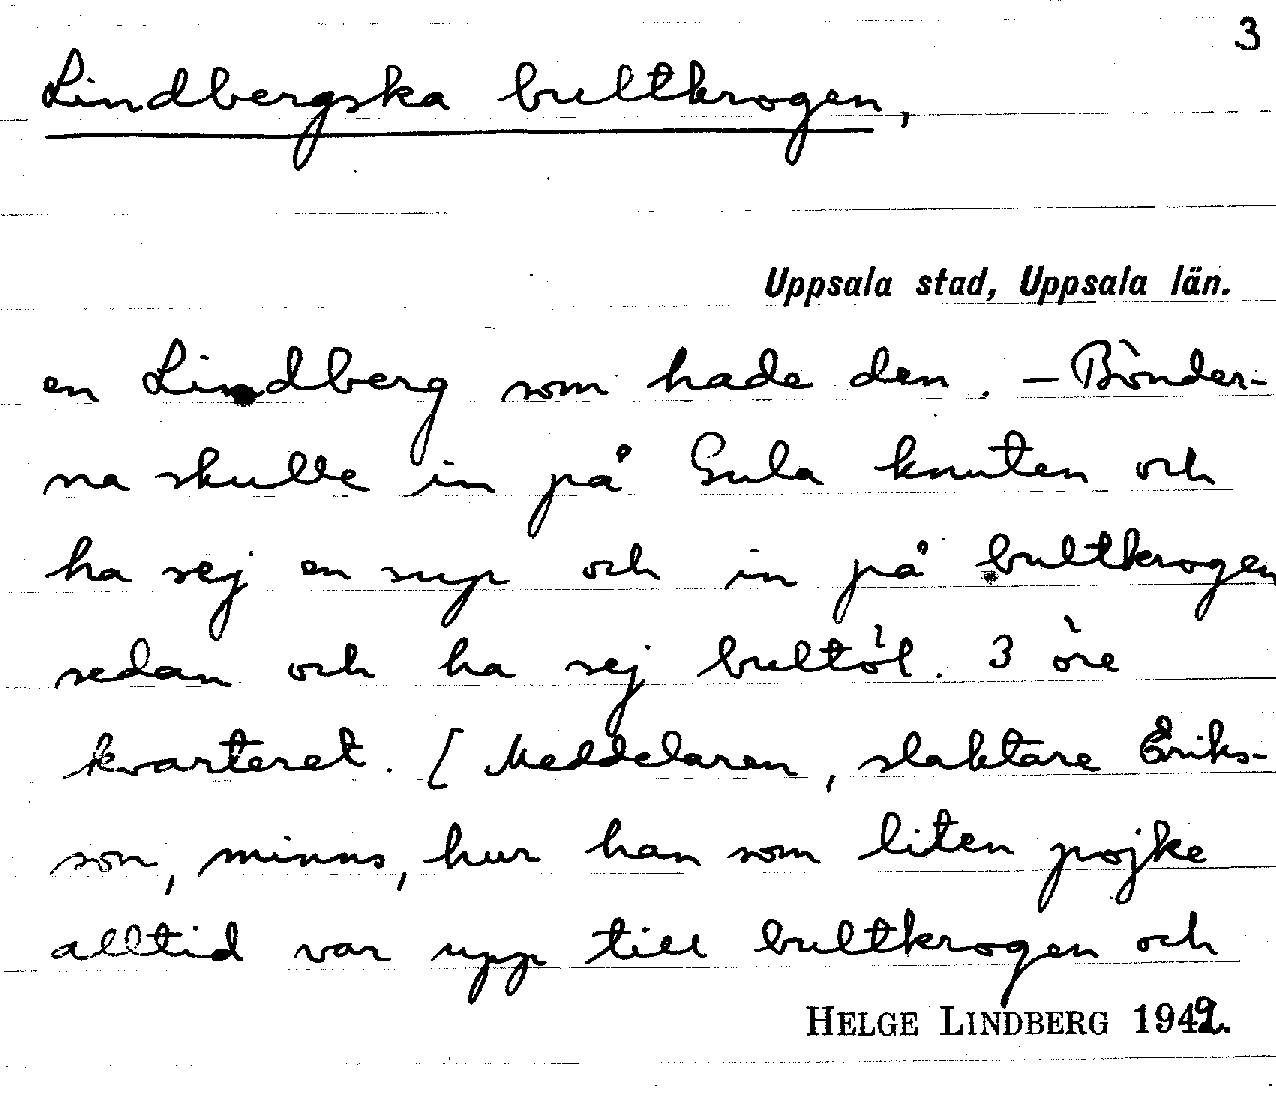 3
Lindbergska bultkrogen,
Uppsala stad, Uppsala län.
en Lindberg som hade den. – Bönder-
na skulle in på Gula knuten och
ha sej en sup och in på bultkrogen
sedan och ha sej bultöl. 3 öre
kvarteret. [ Meddelaren, slaktare Eriks-
son, minns, hur han som liten pojke
alltid var upp till bultkrogen och
HELGE LINDBERG 1949.